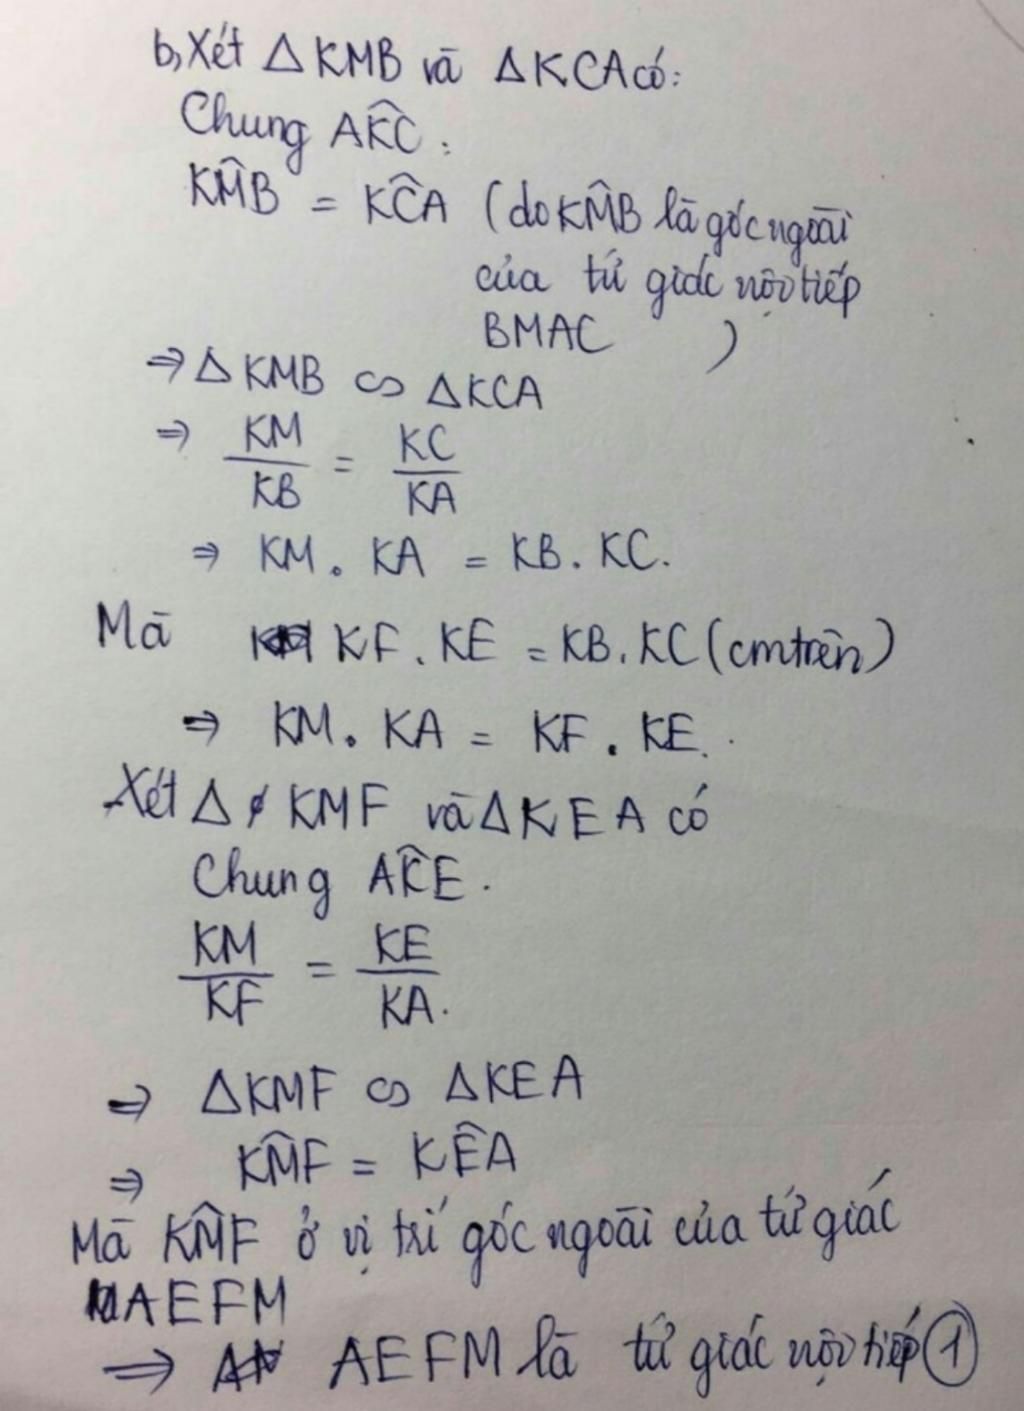 b, Xét △KMB và △KCA có:
Chung AK̂C.
KM̂B = KĈA (do KM̂B là góc ngoài
của tứ giác nội tiếp
BMAC )
⇒ △KMB ∽ △KCA
⇒ KM/KB = KC/KA
⇒ KM . KA = KB . KC.
Mà KF . KE = KB . KC (cm trên)
⇒ KM . KA = KF . KE.
Xét △ KMF và △KEA có
Chung AK̂E.
KM/KF = KE/KA.
⇒ △KMF ∽ △KEA
⇒ KM̂F = KÊA
Mà KM̂F ở vị trí góc ngoài của tứ giác
AEFM
⇒ AEFM là tứ giác nội tiếp ①